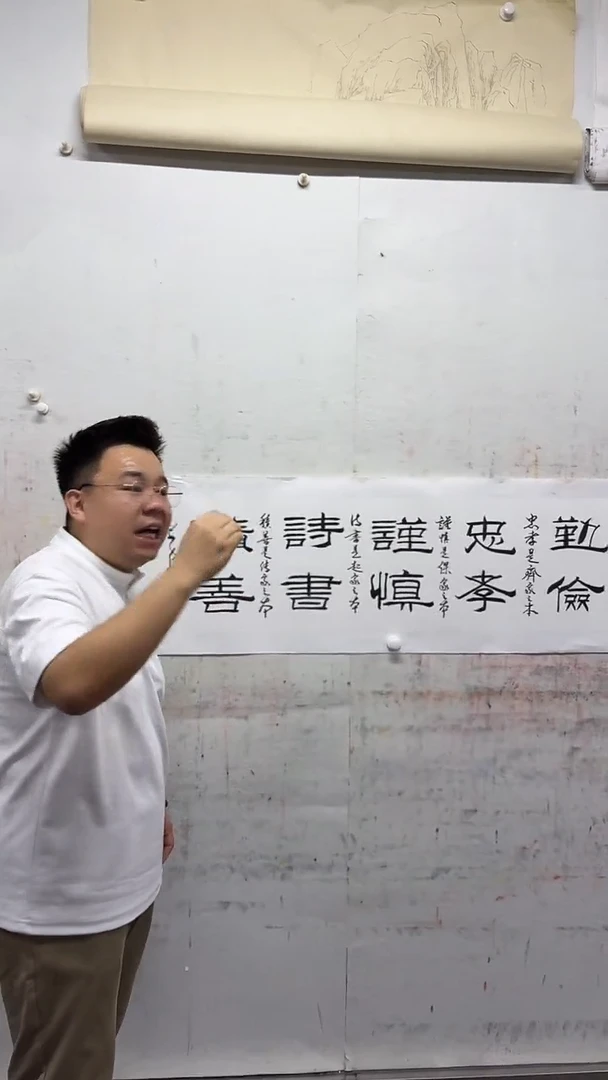 勤儉
忠孝是齊家之本
忠孝
謹慎是保家之本
謹慎
詩書是起家之本
詩書
積善是傳家之本
善